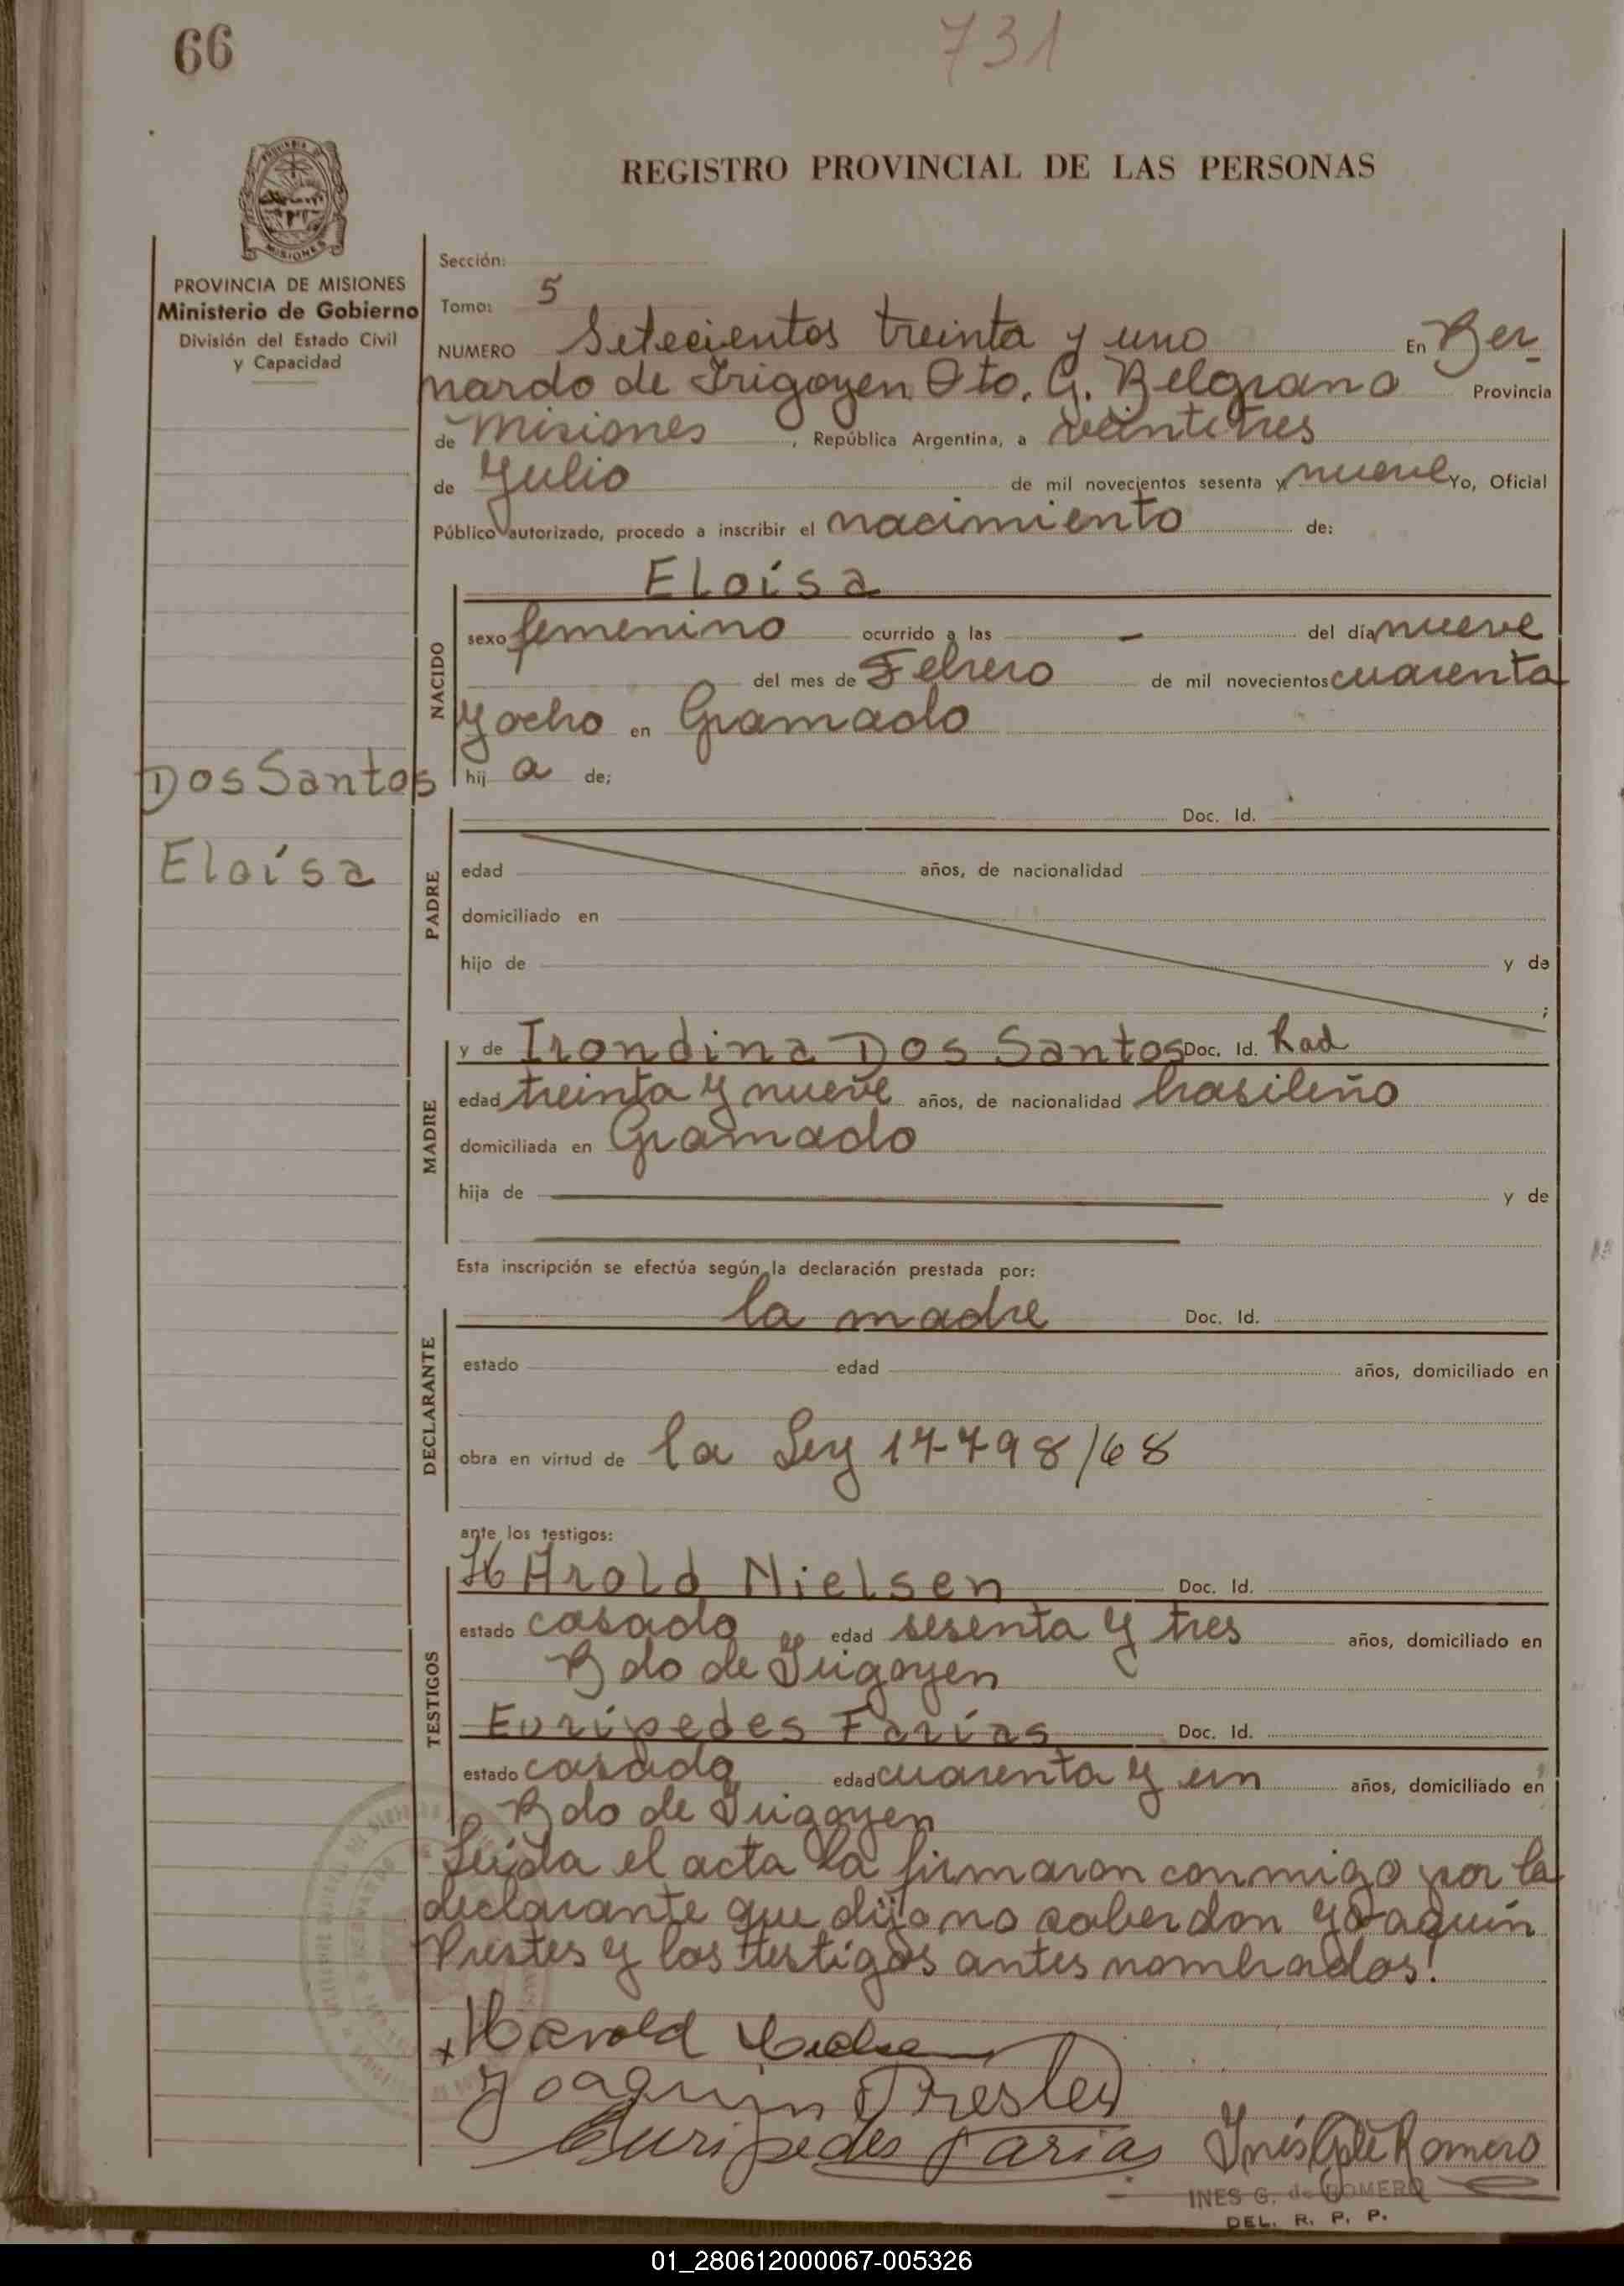 66
731
REGISTRO PROVINCIAL DE LAS PERSONAS
MISIONES
PROVINCIA DE MISIONES
Ministerio de Gobierno
División del Estado Civil
y Capacidad
Sección:
Tomo: 5
NUMERO Setecientos treinta y uno En Ber-
nardo de Irigoyen Dto. G. Belgrano Provincia
de Misiones, República Argentina, a veintitres
de Julio de mil novecientos sesenta y nueve Yo, Oficial
Público autorizado, procedo a inscribir el nacimiento de:
NACIDO
Eloísa
sexo femenino ocurrido a las - del día nueve
del mes de Febrero de mil novecientos cuarenta
y ocho en Gramado
hij a de:
Dos Santos
Eloísa
PADRE
Doc. Id.
edad años, de nacionalidad
domiciliado en
hijo de y de
;
MADRE
y de Irondina Dos Santos Doc. Id. Rad
edad treinta y nueve años, de nacionalidad brasileño
domiciliada en Gramado
hija de y de
Esta inscripción se efectúa según la declaración prestada por:
DECLARANTE
la madre Doc. Id.
estado edad años, domiciliado en
obra en virtud de la Ley 17798/68
ante los testigos:
TESTIGOS
HArold Nielsen Doc. Id.
estado casado edad sesenta y tres años, domiciliado en
Bdo de Irigoyen
Eurípedes Farías Doc. Id.
estado casado edad cuarenta y un años, domiciliado en
Bdo de Irigoyen
Leída el acta la firmaron conmigo por la
declarante que dijo no saber don Yoaquín
Prestes y los testigos antes nombrados!
x Harold
Joaquin Prestes
Euripedes Farias Inés G de Romero
INES G. de ROMERO
DEL. R. P. P.
01_280612000067-005326